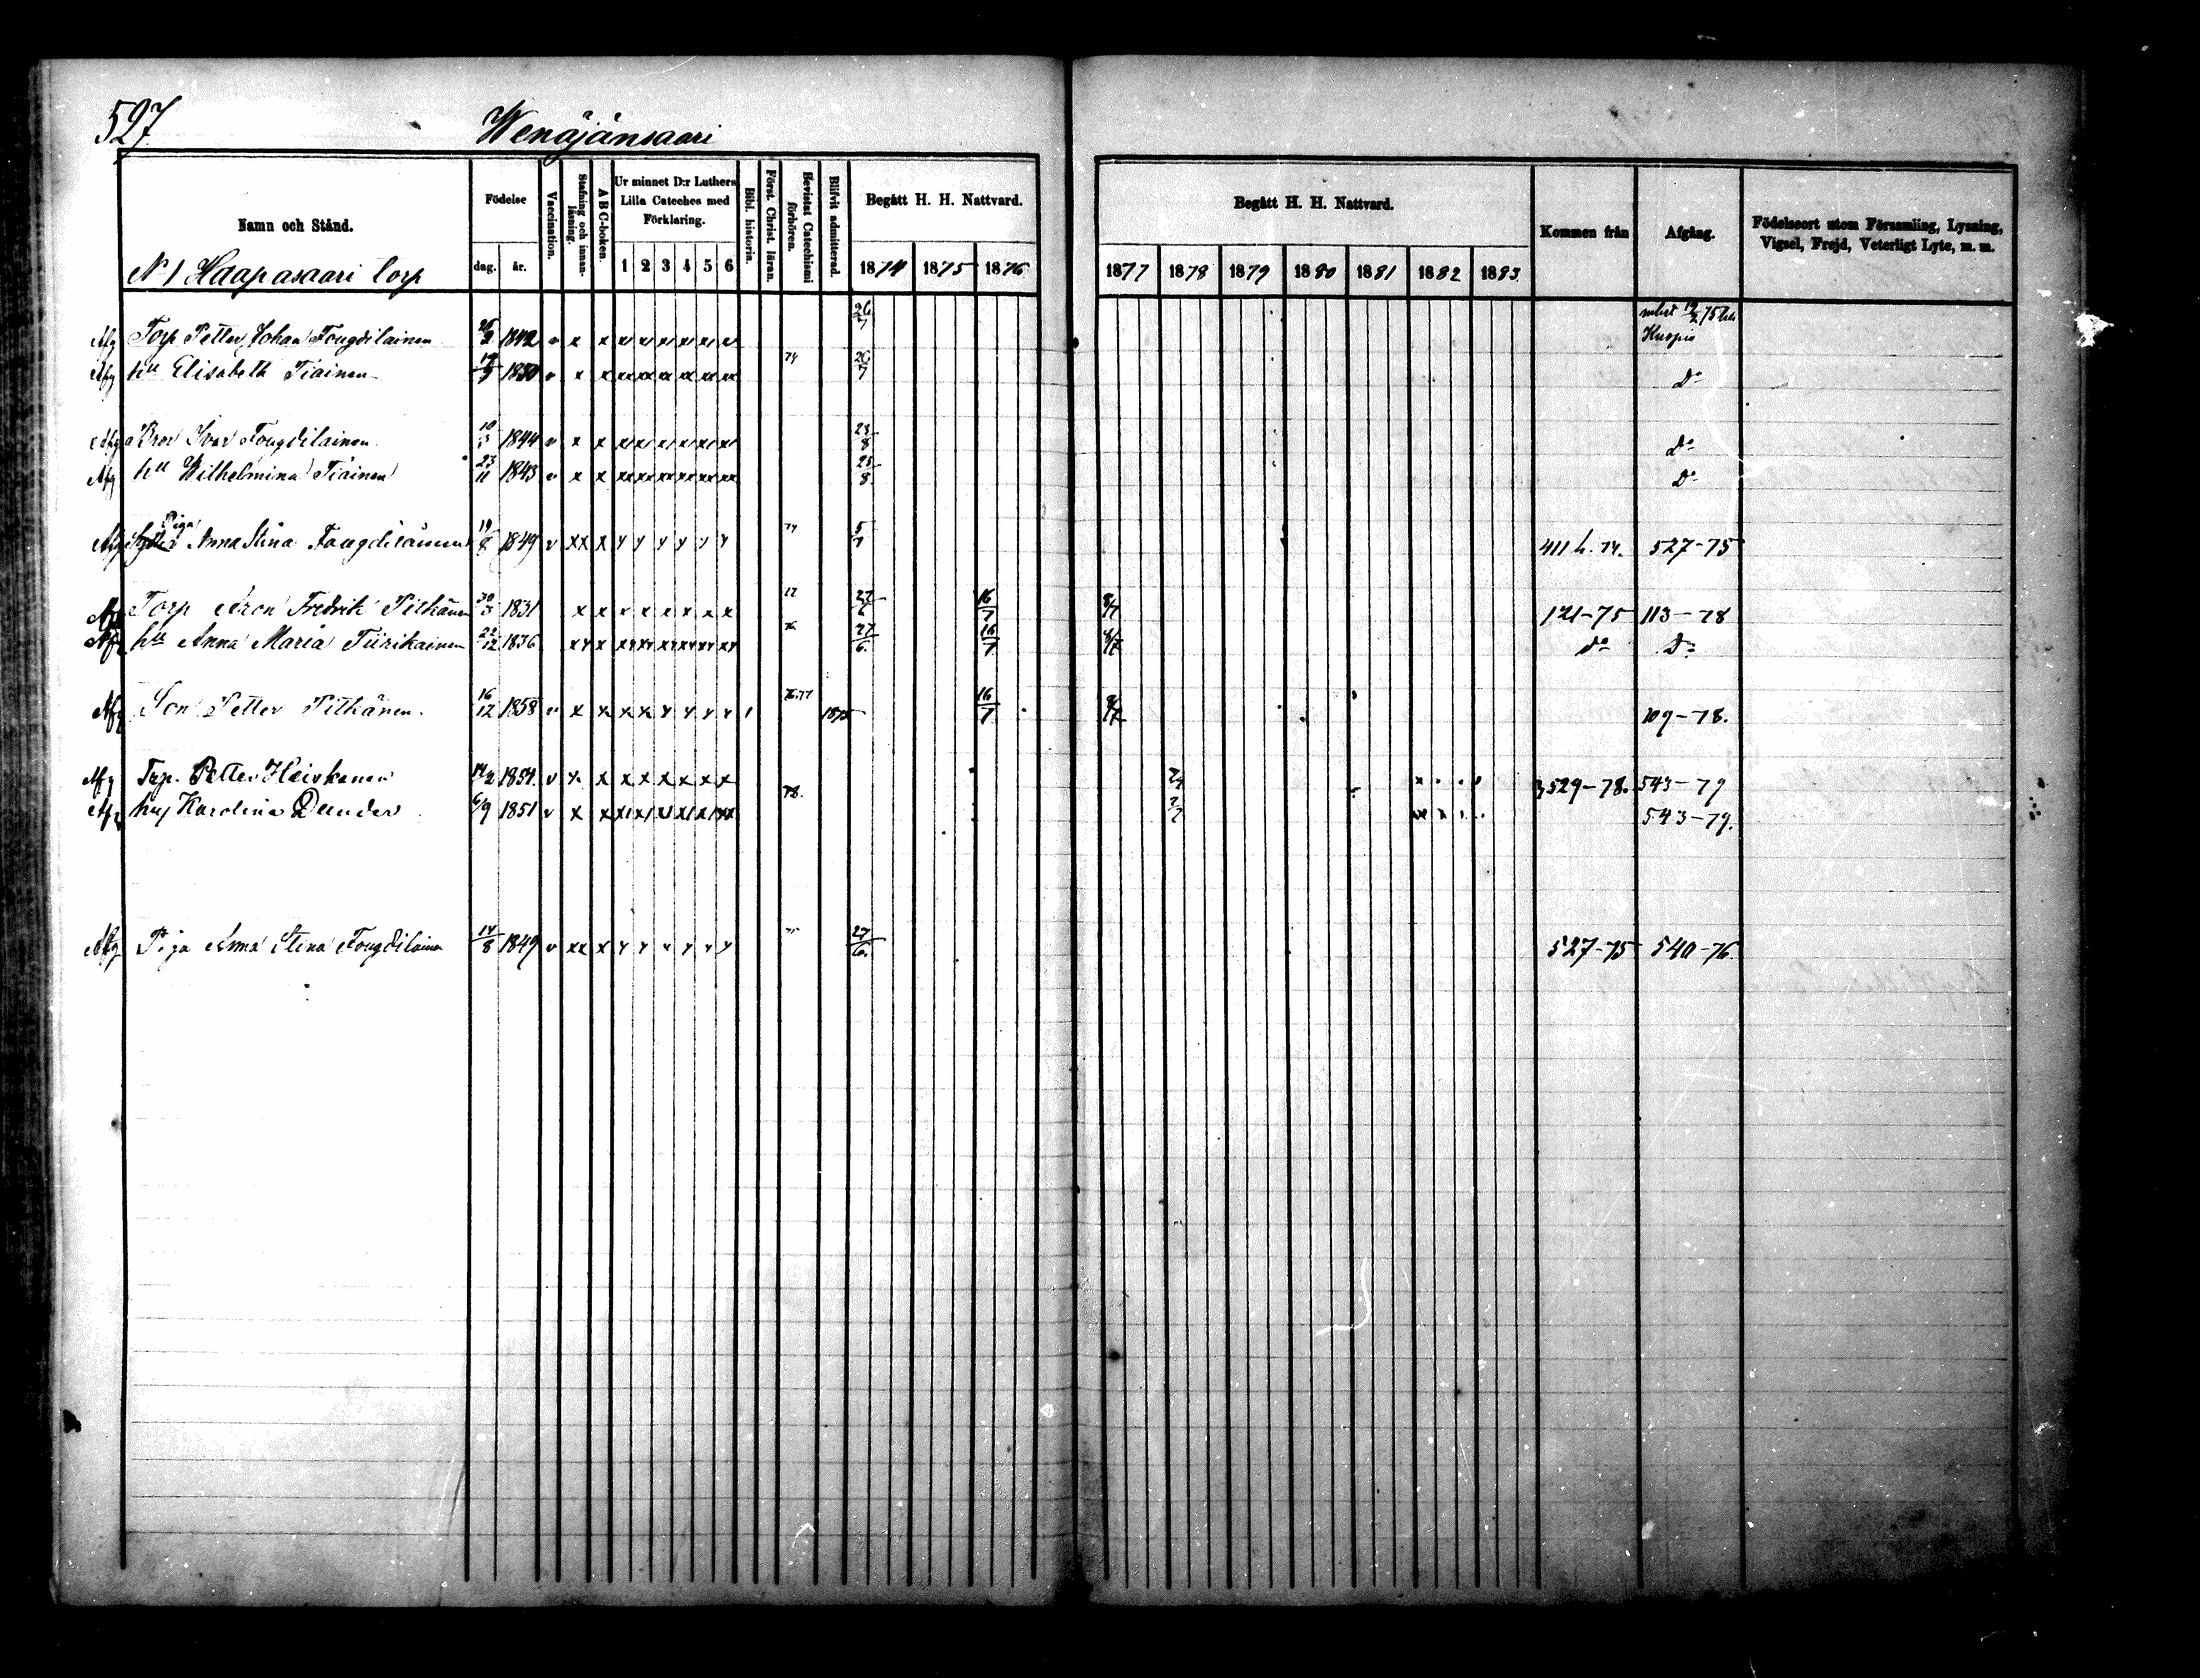 527
Wenäjänsaari
Namn och Stånd.
Födelse
dag. år.
Vaccination.
Stafning och innanläsning.
A B C-boken.
Ur minnet D:r Luthers Lilla Cateches med Förklaring.
1 2 3 4 5 6
Bibl. historie.
Först. Christ. läran.
Bevistat Catechismi förhören.
Blifvit admitterad.
Begått H. H. Nattvard.
1874 1875 1876
Begått H. H. Nattvard.
1877 1878 1879 1880 1881 1882 1883
Kommen från
Afgång.
Födelseort utom Församling, Lysning, Vigsel, Frejd, Veterligt Lyte, m. m.
N 1 Haapasaari torp
Afg Torp Petter Johan Fougdilainen 1842 v x x 26/7 Kuopio
Afg hu Elisabeth Tiainen 1850 v x x 74 26/7 Do
Afg Bror Ivar Fougdilainen 10/3 1844 v x x 23/8 Do
Afg hu Wilhelmina Tiainen 23/11 1843 v x x 23/8 Do
Afg Piga Anna Stina Fougdilainen 1849 v xx x 74 5/7 411 h. 74. 527-75
Afg Torp Aron Fredrik Pitkänen 30/3 1831 x x x x x x x x 27/6 16/7 8/7 121-75 113-78
Afg hu Anna Maria Tiirikainen 22/12 1836 76 27/6 16/7 8/7 do Do
Afg Son Petter Pitkänen. 16/12 1858 v x x 76.77 1875 16/7 8/7 109-78.
Afg Trp. Petter Heiskanen 1854. v x. x x x x x x x 2/7 529-78. 543-79
Afg hu Karolina Dunder 6/9 1851 v x x 78. 2/7 543-79.
Afg Piga Anna Stina Fougdilainen 14/8 1849 v xx x 27/6. 527-75 540-76